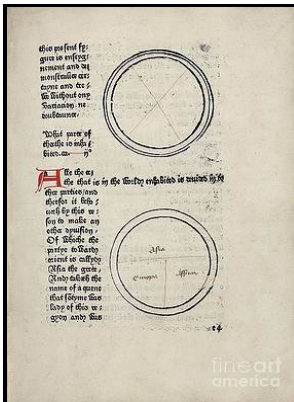 this present fy-
gure is enseyg-
nement and de
monstraunce cer-
tayne and tre-
we without ony
variacion ne
doubtaunce
What parte of
therthe is inha-
bited
Alle the er-
the that is in the world enhabited is deuided in to
thre parties / and
therfor it beho-
ueth by this re-
son to make an
other dyuision
Of whiche the
partye toward
orient is callyd
Asia the grete
And taketh the
name of a quene
that somtyme was
lady of this re-
gyon and was
Asia
Europa
Affrica
fine art
america